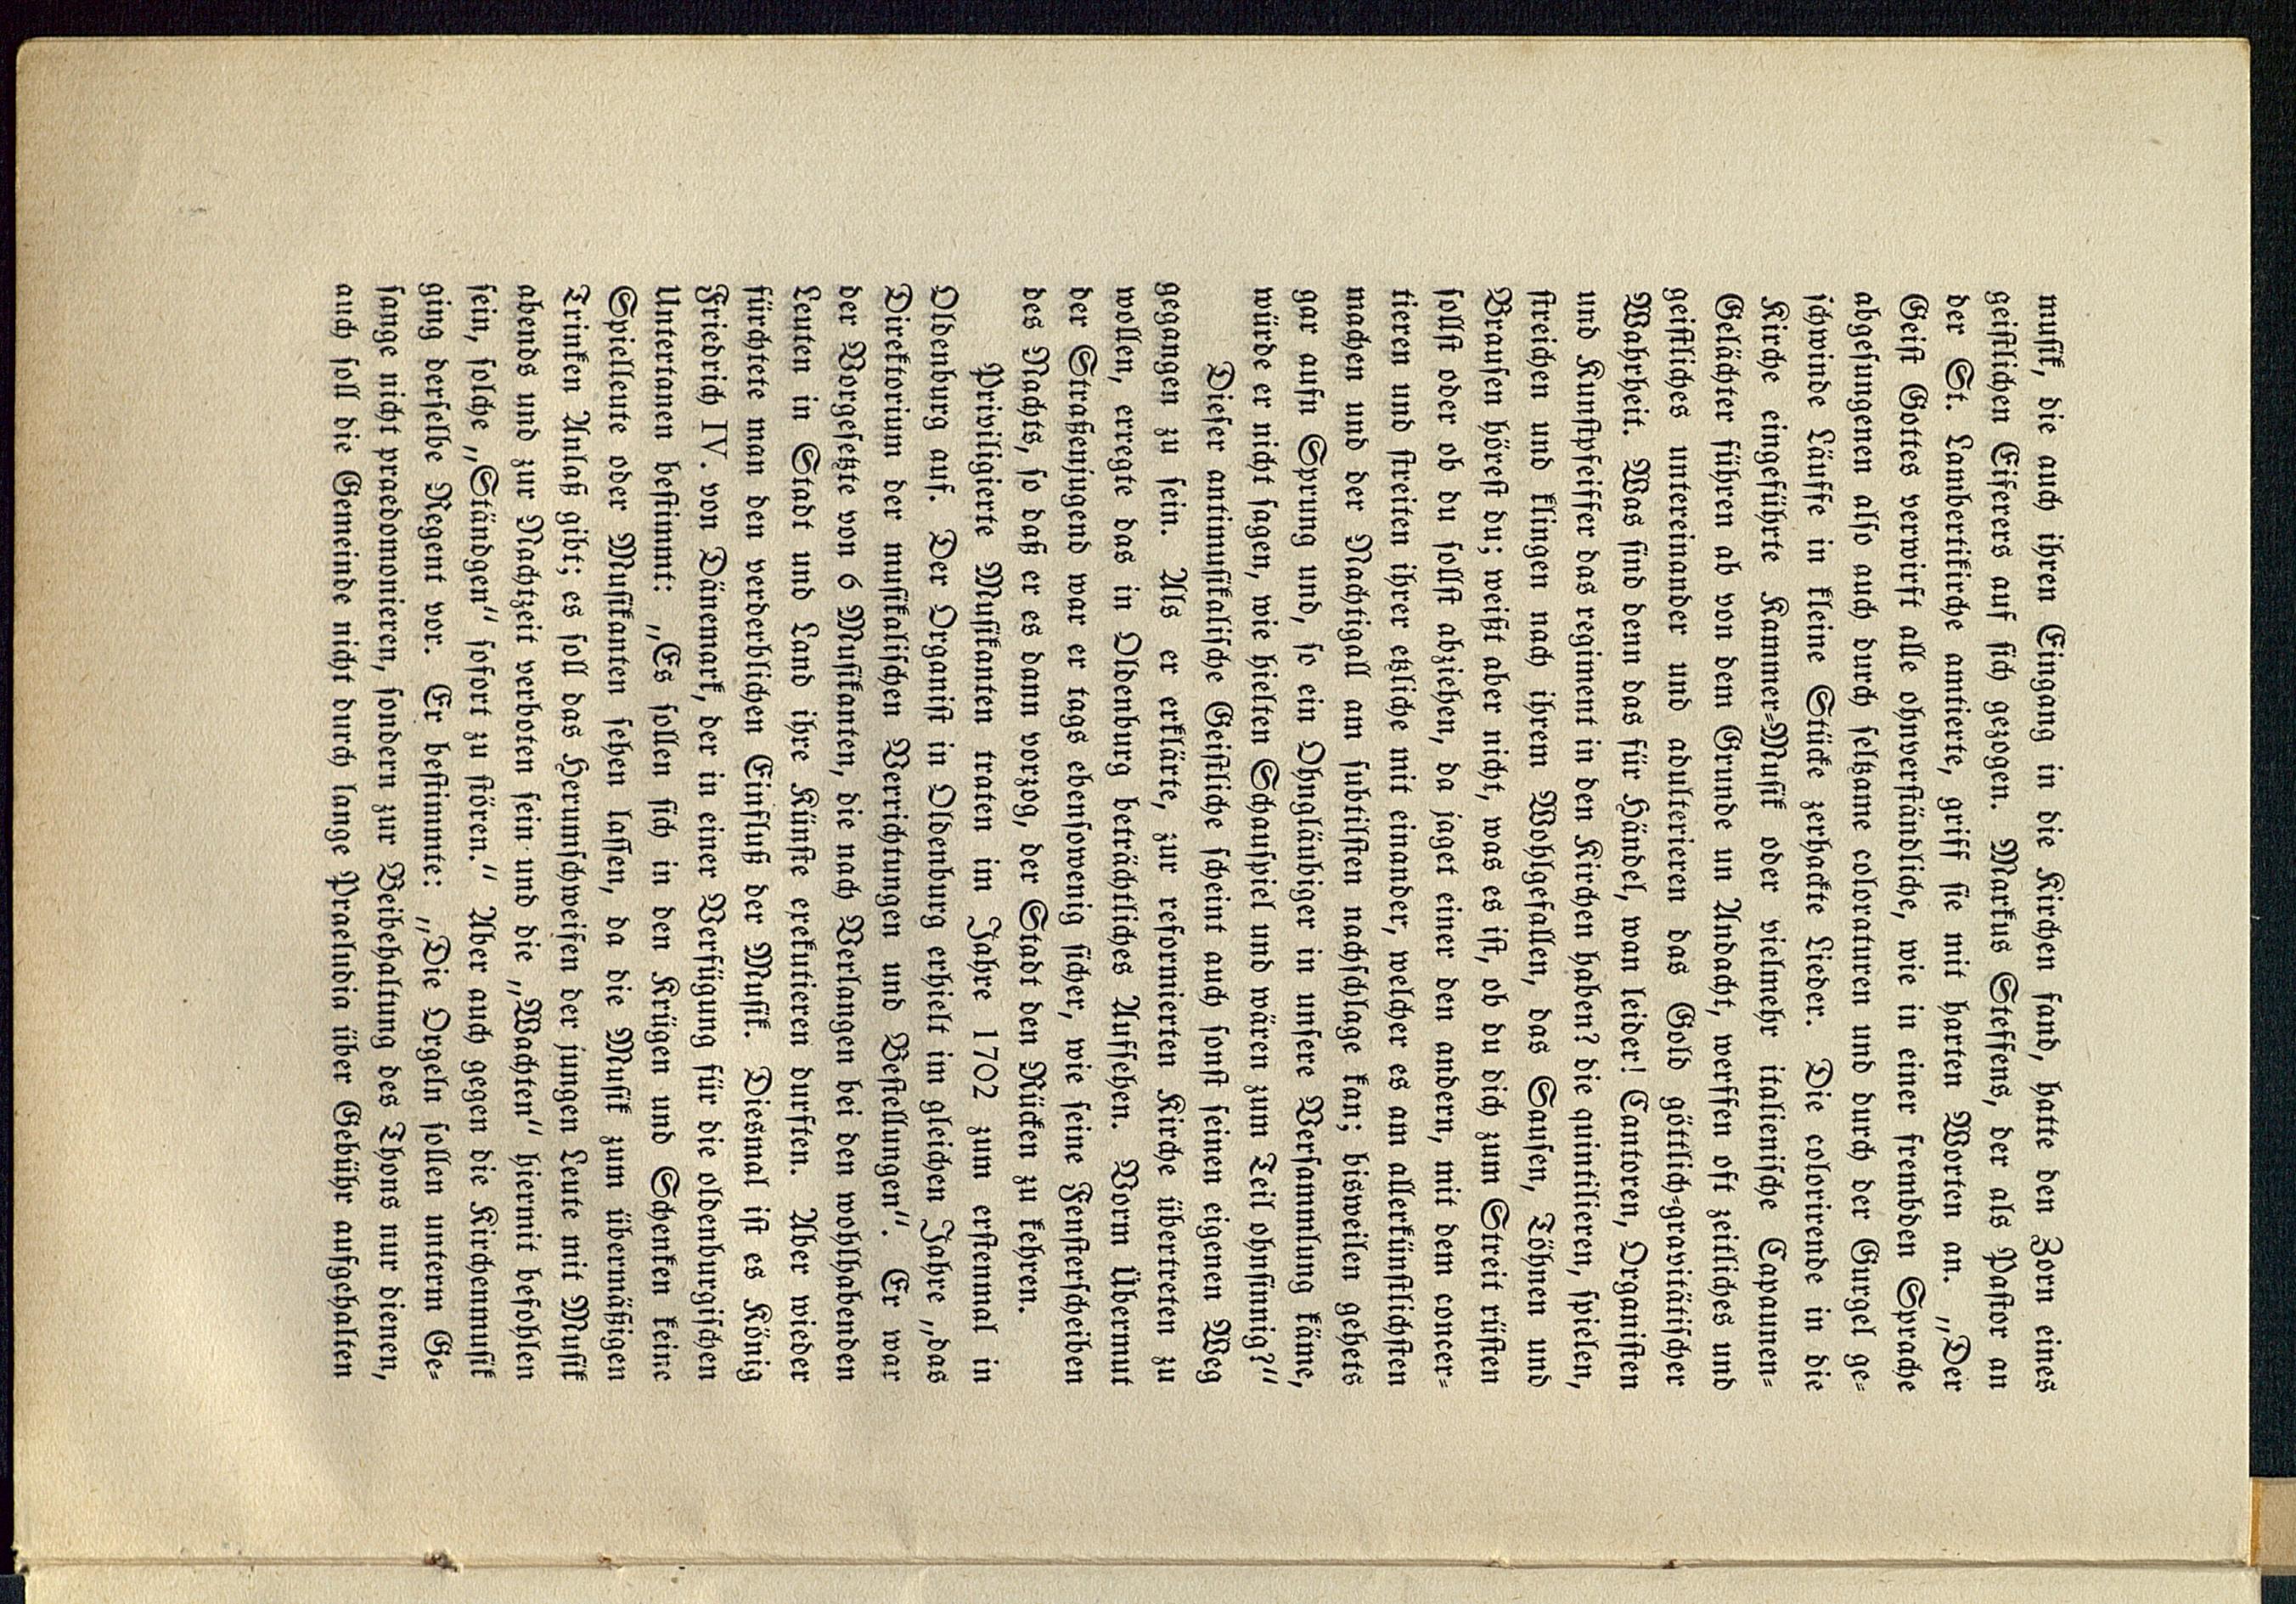 musik, die auch ihren Eingang in die Kirchen fand, hatte den Zorn eines
geistlichen Eiferers auf sich gezogen. Markus Steffens, der als Pastor an
der St. Lambertikirche amtierte, griff sie mit harten Worten an. „Der
Geist Gottes verwirft alle ohnverständliche, wie in einer frembden Sprache
abgesungenen also auch durch seltzame coloraturen und durch der Gurgel ge-
schwinde Läuffe in kleine Stücke zerhackte Lieder. Die colorirende in die
Kirche eingeführte Kammer-Musik oder vielmehr italienische Capaunen-
Gelächter führen ab von dem Grunde un Andacht, werffen oft zeitliches und
geistliches untereinander und adulterieren das Gold göttlich-gravitätischer
Wahrheit. Was sind denn das für Händel, wan leider! Cantoren, Organisten
und Kunstpfeiffer das regiment in den Kirchen haben? die quintilieren, spielen,
streichen und klingen nach ihrem Wohlgefallen, das Sausen, Töhnen und
Brausen hörest du; weißt aber nicht, was es ist, ob du dich zum Streit rüsten
sollst oder ob du sollst abziehen, da jaget einer den andern, mit dem concer-
tieren und streiten ihrer etzliche mit einander, welcher es am allerkünstlichsten
machen und der Nachtigall am subtilsten nachschlage kan; bisweilen gehets
gar aufn Sprung und, so ein Ohngläubiger in unsere Versammlung käme,
würde er nicht sagen, wie hielten Schauspiel und wären zum Teil ohnsinnig?“
Dieser antimusikalische Geistliche scheint auch sonst seinen eigenen Weg
gegangen zu sein. Als er erklärte, zur reformierten Kirche übertreten zu
wollen, erregte das in Oldenburg beträchtliches Aufsehen. Vorm Übermut
der Straßenjugend war er tags ebensowenig sicher, wie seine Fensterscheiben
des Nachts, so daß er es dann vorzog, der Stadt den Rücken zu kehren.
Priviligierte Musikanten traten im Jahre 1702 zum erstenmal in
Oldenburg auf. Der Organist in Oldenburg erhielt im gleichen Jahre „das
Direktorium der musikalischen Verrichtungen und Bestellungen“. Er war
der Vorgesetzte von 6 Musikanten, die nach Verlangen bei den wohlhabenden
Leuten in Stadt und Land ihre Künste exekutieren durften. Aber wieder
fürchtete man den verderblichen Einfluß der Musik. Diesmal ist es König
Friedrich IV. von Dänemark, der in einer Verfügung für die oldenburgischen
Untertanen bestimmt: „Es sollen sich in den Krügen und Schenken keine
Spielleute oder Musikanten sehen lassen, da die Musik zum übermäßigen
Trinken Anlaß gibt; es soll das Herumschweifen der jungen Leute mit Musik
abends und zur Nachtzeit verboten sein und die „Wachten“ hiermit befohlen
sein, solche „Ständgen“ sofort zu stören.“ Aber auch gegen die Kirchenmusik
ging derselbe Regent vor. Er bestimmte: „Die Orgeln sollen unterm Ge-
sange nicht praedomonieren, sondern zur Beibehaltung des Thons nur dienen,
auch soll die Gemeinde nicht durch lange Praeludia über Gebühr aufgehalten